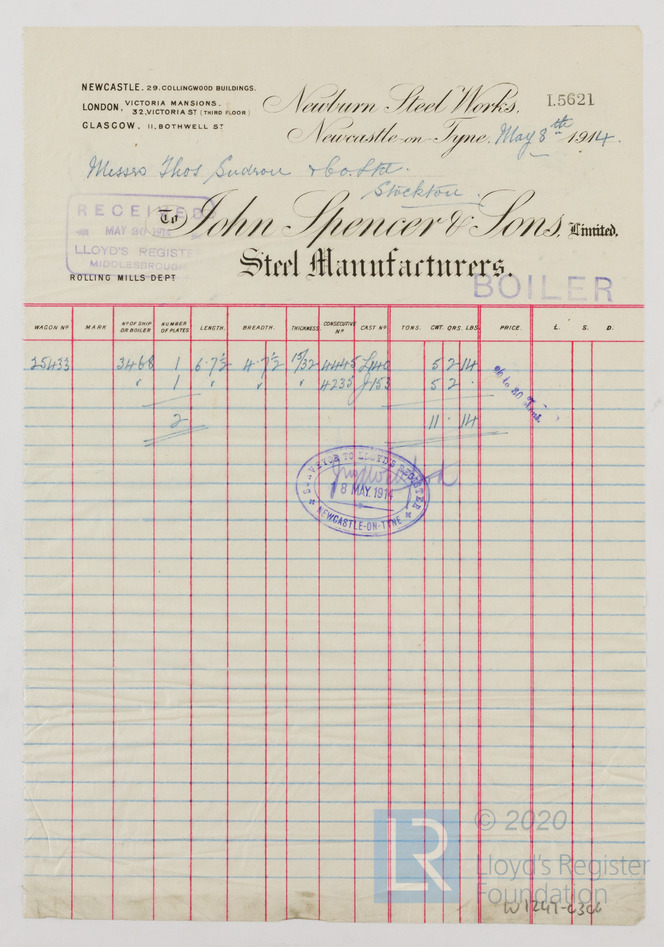 NEWCASTLE. 29. COLLINGWOOD BUILDINGS.
LONDON, VICTORIA MANSIONS.
32, VICTORIA ST (THIRD FLOOR)
GLASGOW, 11, BOTHWELL ST
Newburn Steel Works,
I.5621
Newcastle-on-Tyne, May 8th 1914.
Messrs Thos Sudron & Co. Ltd.
Stockton.
RECEIVED
MAY 30 1914
LLOYD'S REGISTE
MIDDLESBROUGH
To John Spencer & Sons, Limited,
Steel Manufacturers.
ROLLING MILLS DEPT
BOILER
WAGON No MARK No OF SHIP OR BOILER NUMBER OF PLATES LENGTH. BREADTH. THICKNESS. CONSECUTIVE No CAST No TONS. CWT. QRS. LBS. PRICE. L. S. D.
25433 3468 1 6·7½ 4·7½ 15/32 4445 5 2 14
" 1 " " " 4235 J153 5 2 ·
2 11 · 14
26 to 30 Tons.
SURVEYOR TO LLOYD'S REGISTER
8 MAY. 1914
NEWCASTLE-ON-TYNE
LR
© 2020
Lloyd's Register
Foundation